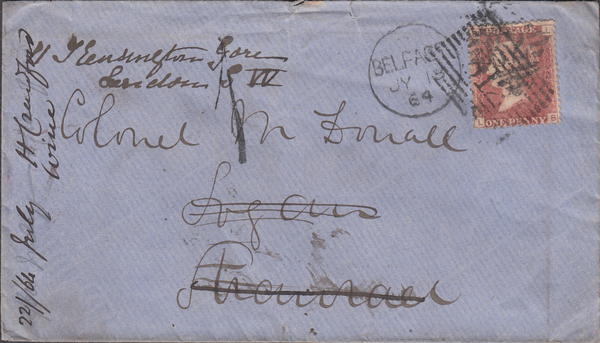 Kensington Gore
London S W
Colonel McDonall
Logans
Stranraer
22/64 July H Crawford
wine
BELFAST
JY 18
64
POSTAGE
ONE PENNY
L B